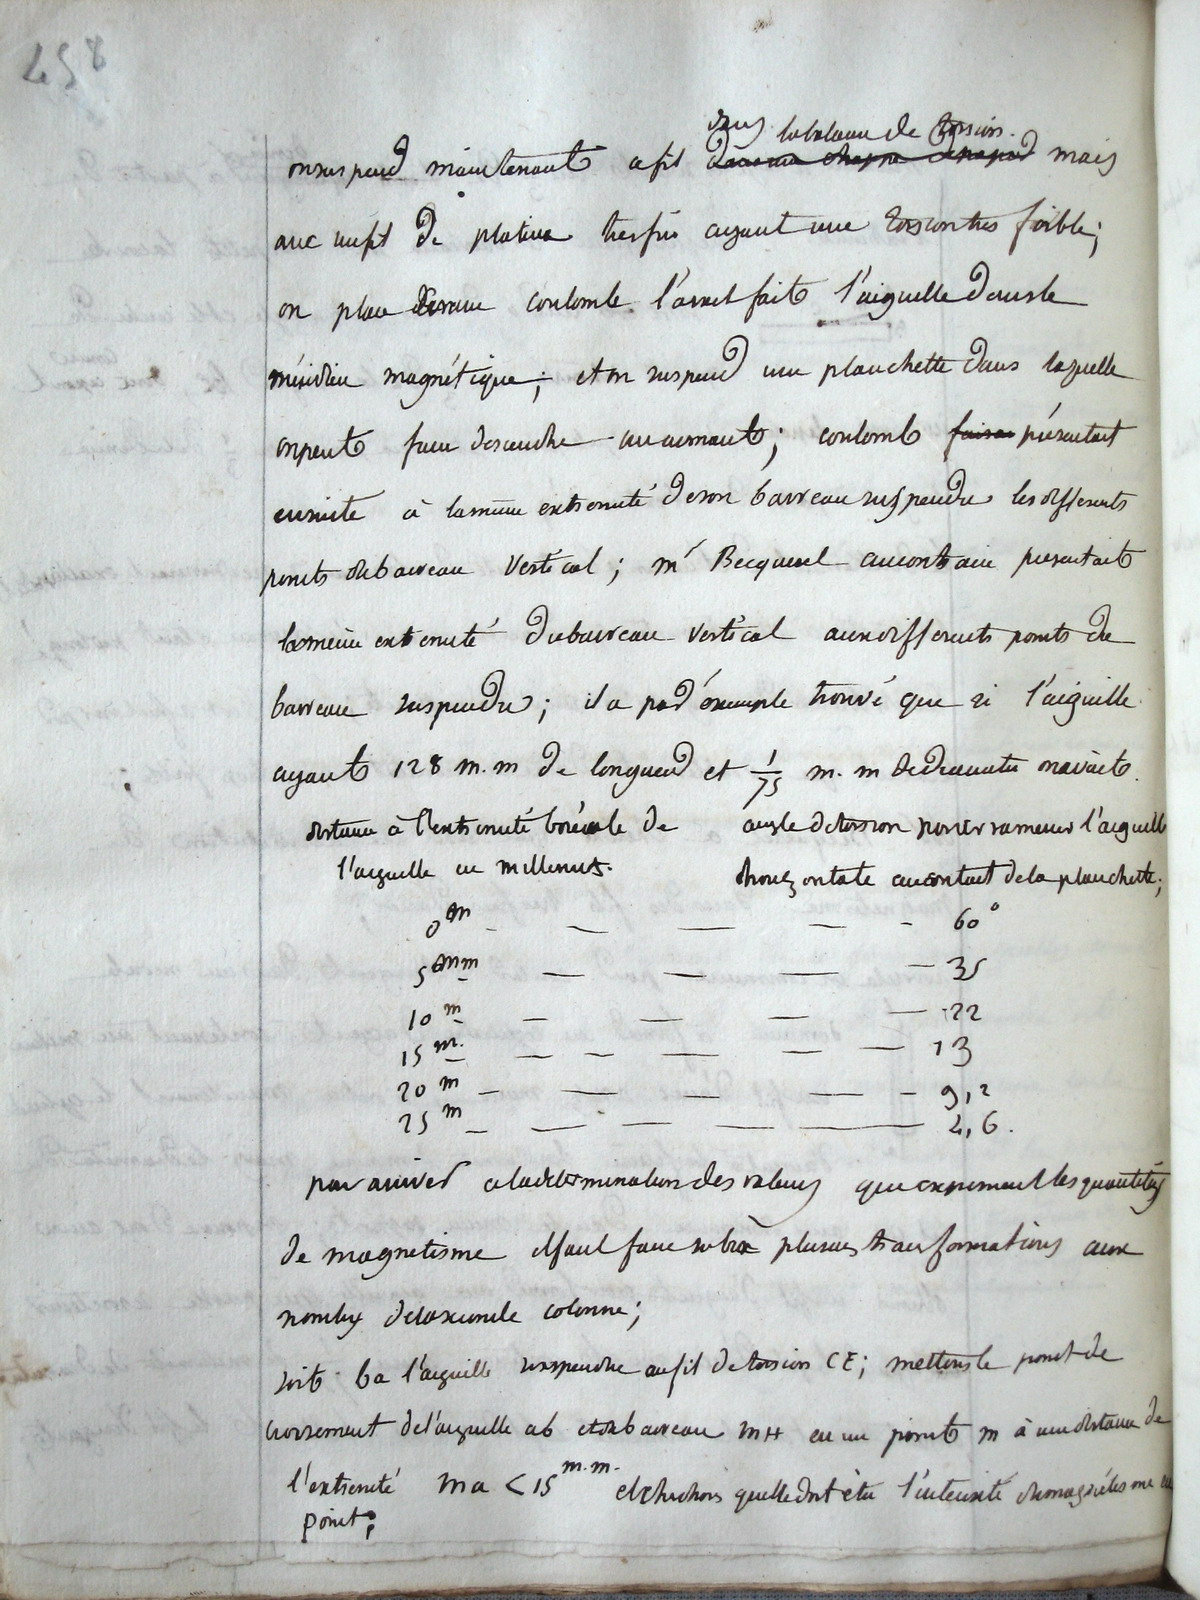 458
dans la balance de torsion
on suspend maintenant a fil mais
avec un fil de platine tres fin ayant une torsion tres foible;
on place comme coulomb l'avoit fait l'aiguille dans le
méridien magnétique; et on suspend une planchette dans laquelle
on peut faire descendre un aimant; coulomb faisoit présentait
ensuite à la même extremité de son barreau suspendu les differents
points du barreau vertical; mr Becquerel au contraire presentait
la même extremité du barreau vertical aux differents points du
barreau suspendu; il a par éxemple trouvé que si l'aiguille
ayant 128 m.m de longueur et 1/75 m.m de diametre on avait
distance à l'extremité boréale de angle de torsion pour ramener l'aiguille
l'aiguille en millimes. horizontale au contact de la planchette;
0 m — — — - 60°
5 mm — — — — 35
10 m — — — — 22
15 m. — — — — — 13
20 m — — — — - 9,2
25 m — — — — — 4,6.
pour arriver a la determination des valeurs que expriment les quantités
de magnetisme il faut faire subir plusieurs transformations aux
nombres de la seconde colonne;
soit ba l'aiguille suspendue au fil de torsion CE; mettons le point de
croisement de l'aiguille ab et du barreau mH en un point m à une distance de
l'extremité ma < 15 m.m. et cherchons quelle doit être l'intensité du magnétisme en ce
point;